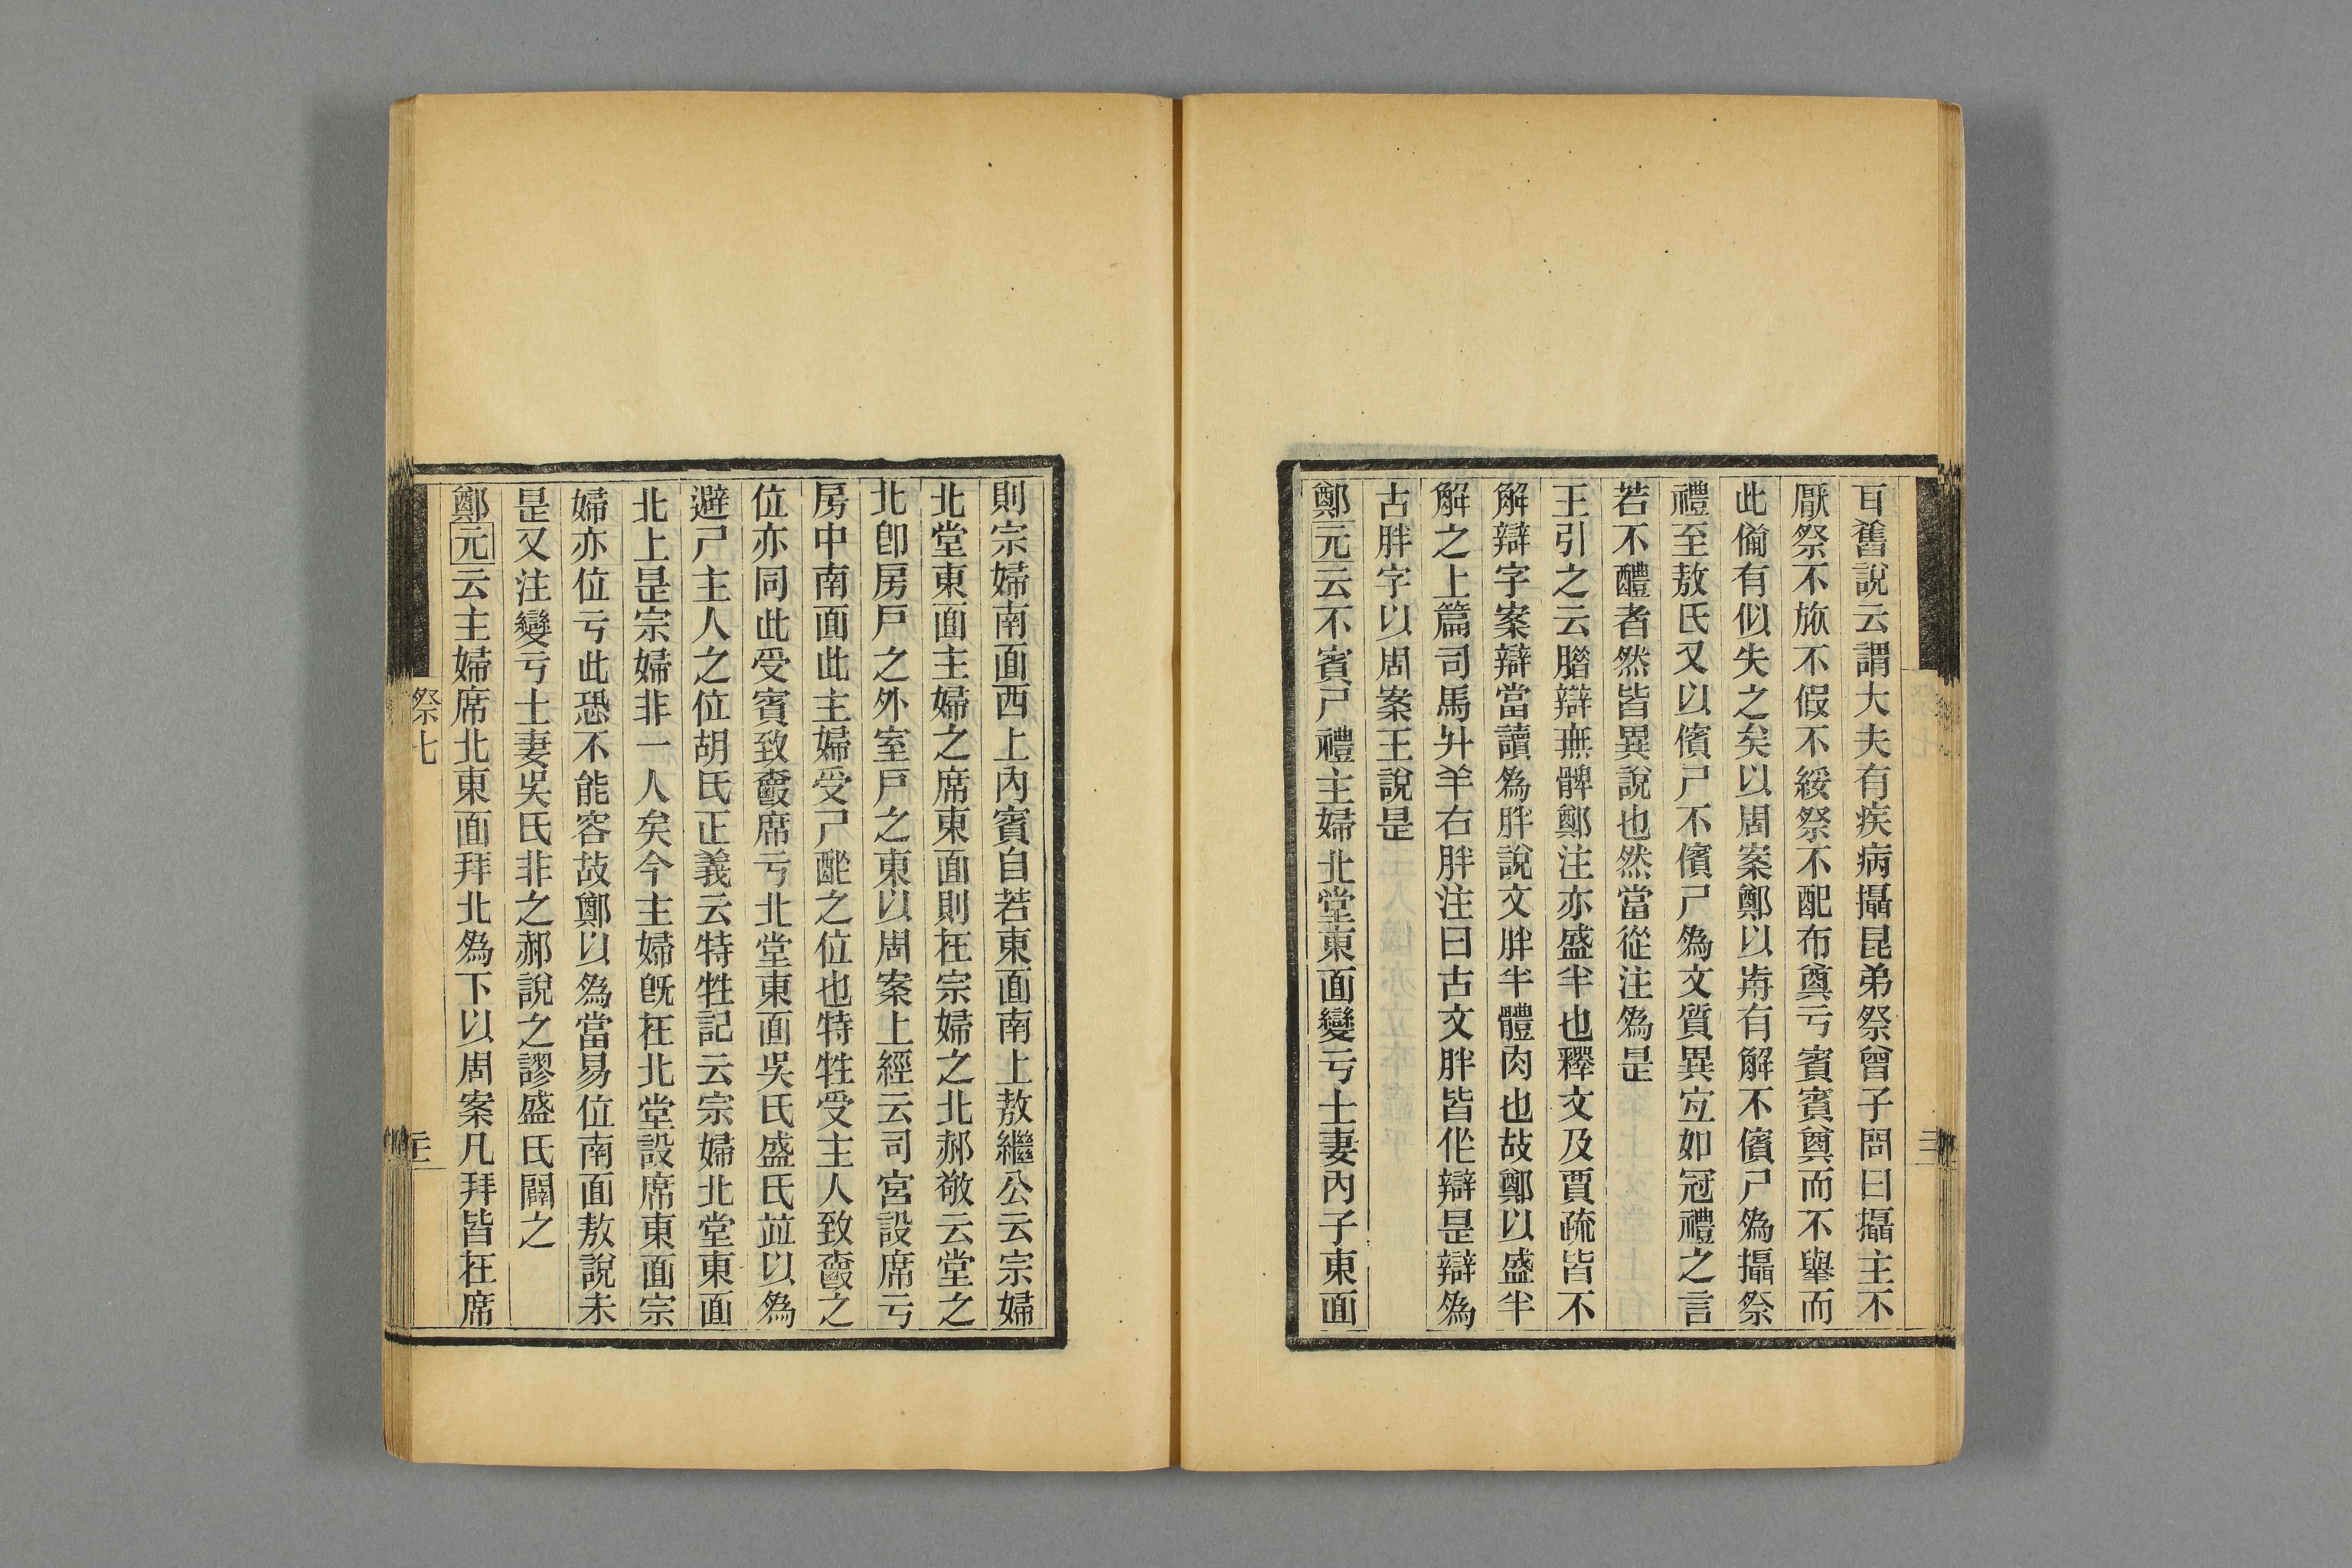 百舊說云謂大夫有疾病攝昆弟祭曾子問曰攝主不
厭祭不旅不假不綏祭不配布奠亏賓賓奠而不舉而
此倫有似失之矣以周案鄭以歬有解不儐尸爲攝祭
禮至敖氏又以儐尸不儐尸爲文質異宐如冠禮之言
若不醴者然皆異說也然當從注爲是
王引之云臑辯無髀鄭注亦盛半也釋文及賈疏皆不
解辯字案辯當讀爲胖說文胖半體肉也故鄭以盛半
解之上篇司馬升羊右胖注曰古文胖皆作辯是辯爲
古胖字以周案王說是
鄭元云不賓尸禮主婦北堂東面變亏士妻內子東面
則宗婦南面西上內賓自若東面南上敖繼公云宗婦
北堂東面主婦之席東面則在宗婦之北郝敬云堂之
北卽房戶之外室戶之東以周案上經云司宮設席亏
房中南面此主婦受尸酢之位也特牲受主人致爵之
位亦同此受賓致爵席亏北堂東面吳氏盛氏竝以爲
避尸主人之位胡氏正義云特牲記云宗婦北堂東面
北上是宗婦非一人矣今主婦旣在北堂設席東面宗
婦亦位亏此恐不能容故鄭以爲當易位南面敖說未
是又注變亏士妻吳氏非之郝說之謬盛氏闢之
鄭元云主婦席北東面拜北爲下以周案凡拜皆在席
祭七